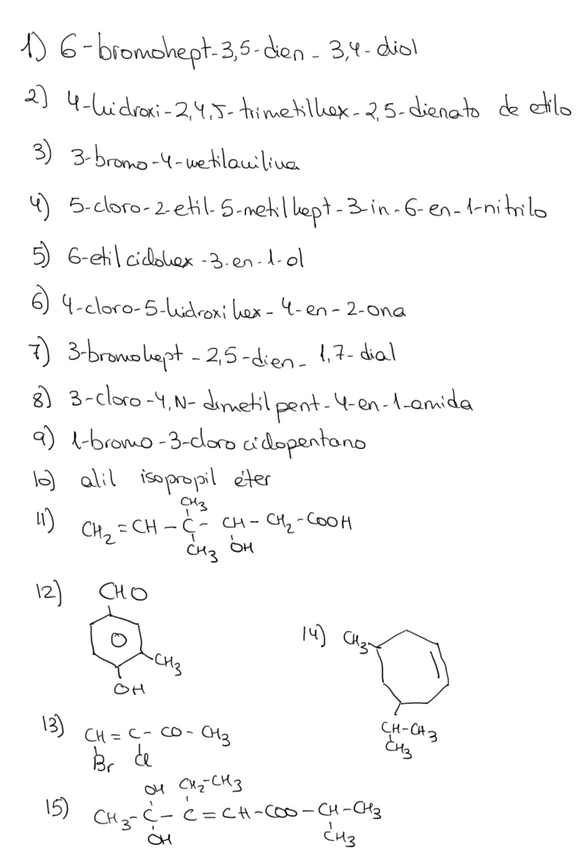 1) 6-bromohept-3,5-dien-3,4-diol
2) 4-hidroxi-2,4,5-trimetilhex-2,5-dienato de etilo
3) 3-bromo-4-metilanilina
4) 5-cloro-2-etil-5-metilhept-3-in-6-en-1-nitrilo
5) 6-etilciclohex-3-en-1-ol
6) 4-cloro-5-hidroxihex-4-en-2-ona
7) 3-bromohept-2,5-dien-1,7-dial
8) 3-cloro-4,N-dimetilpent-4-en-1-amida
9) 1-bromo-3-clorociclopentano
10) alil isopropil éter
CH3
11) CH2=CH-C-CH-CH2-COOH
CH3 OH
12) CHO
CH3
OH
14) CH3
CH-CH3
CH3
13) CH=C-CO-CH3
Br Cl
OH CH2-CH3
15) CH3-C-C=CH-COO-CH-CH3
OH CH3